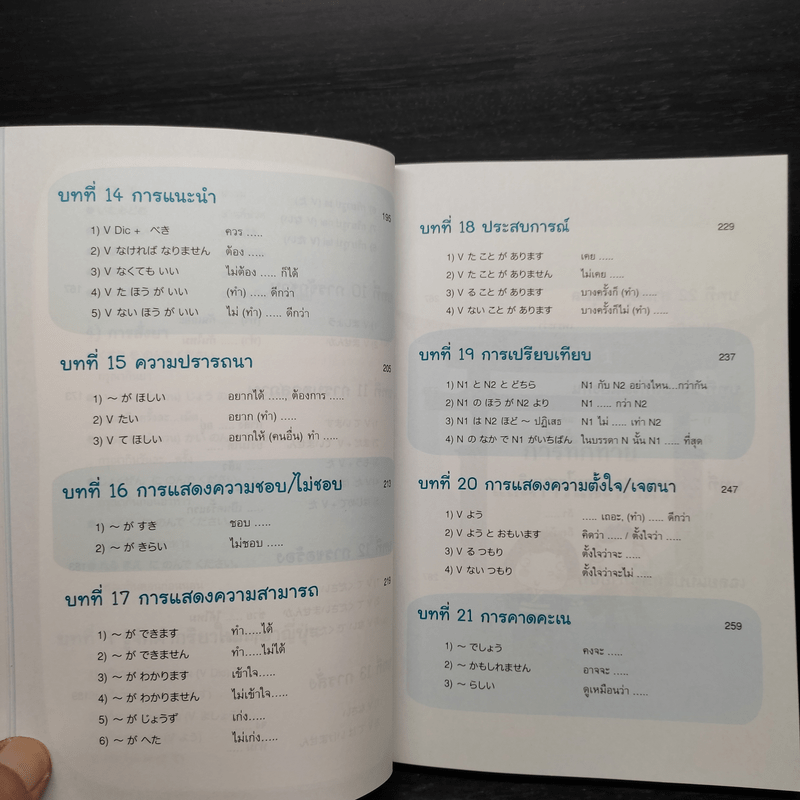 บทที่ 14 การแนะนำ 195
1) V Dic + べき ควร .....
2) V なければ なりません ต้อง .....
3) V なくても いい ไม่ต้อง ..... ก็ได้
4) V た ほう が いい (ทำ) ..... ดีกว่า
5) V ない ほう が いい ไม่ (ทำ) ..... ดีกว่า
บทที่ 15 ความปรารถนา 205
1) ～ が ほしい อยากได้ ....., ต้องการ .....
2) V たい อยาก (ทำ) .....
3) V て ほしい อยากให้ (คนอื่น) ทำ .....
บทที่ 16 การแสดงความชอบ/ไม่ชอบ 213
1) ～ が すき ชอบ .....
2) ～ が きらい ไม่ชอบ .....
บทที่ 17 การแสดงความสามารถ 219
1) ～ が できます ทำ.....ได้
2) ～ が できません ทำ.....ไม่ได้
3) ～ が わかります เข้าใจ.....
4) ～ が わかりません ไม่เข้าใจ.....
5) ～ が じょうず เก่ง.....
6) ～ が へた ไม่เก่ง.....
บทที่ 18 ประสบการณ์ 229
1) V た こと が あります เคย .....
2) V た こと が ありません ไม่เคย .....
3) V る こと が あります บางครั้งก็ (ทำ) .....
4) V ない こと が あります บางครั้งก็ไม่ (ทำ) .....
บทที่ 19 การเปรียบเทียบ 237
1) N1 と N2 と どちら N1 กับ N2 อย่างไหน...กว่ากัน
2) N1 の ほう が N2 より N1 ..... กว่า N2
3) N1 は N2 ほど ～ ปฏิเสธ N1 ไม่ ..... เท่า N2
4) N の なか で N1 がいちばん ในบรรดา N นั้น N1 ..... ที่สุด
บทที่ 20 การแสดงความตั้งใจ/เจตนา 247
1) V よう ..... เถอะ, (ทำ) ..... ดีกว่า
2) V よう と おもいます คิดว่า ..... / ตั้งใจว่า .....
3) V る つもり ตั้งใจว่าจะ .....
4) V ない つもり ตั้งใจว่าจะไม่ .....
บทที่ 21 การคาดคะเน 259
1) ～ でしょう คงจะ .....
2) ～ かもしれません อาจจะ .....
3) ～ らしい ดูเหมือนว่า .....